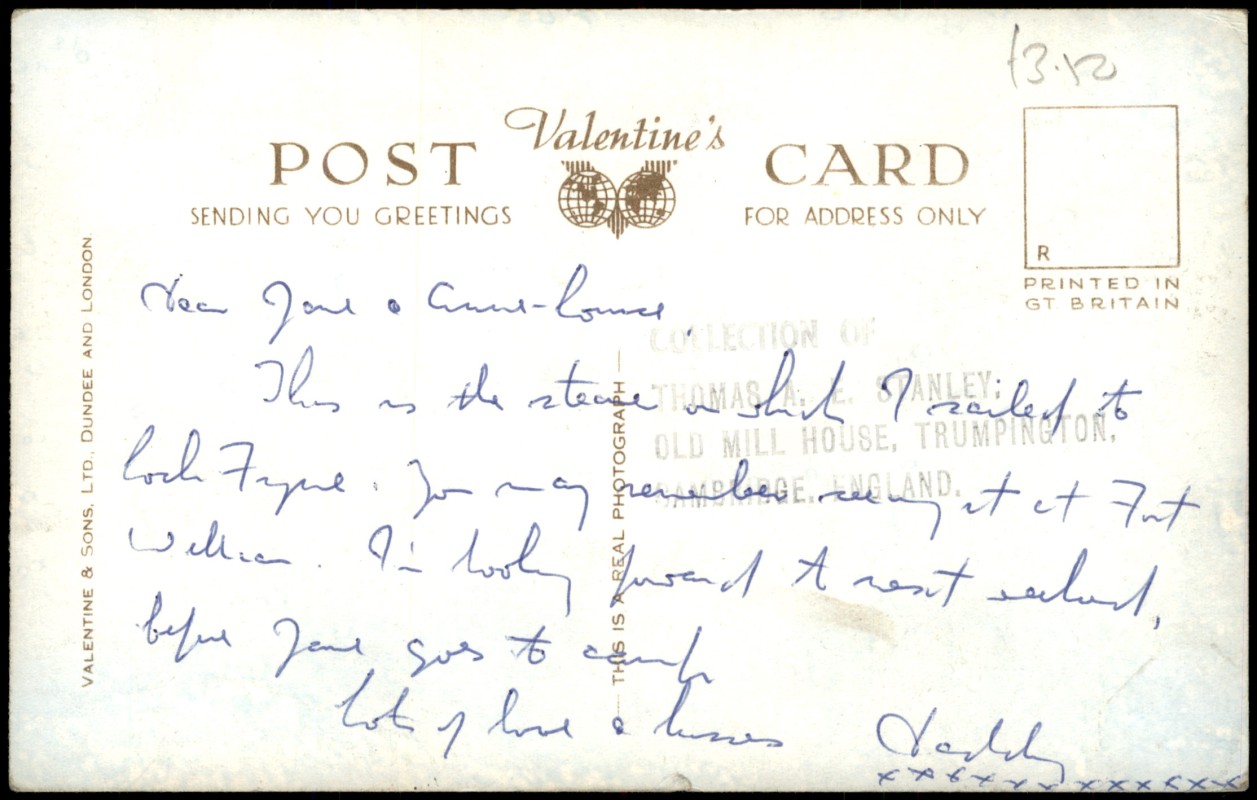 £3.50
Valentine's
POST CARD
SENDING YOU GREETINGS
FOR ADDRESS ONLY
R
PRINTED IN
GT. BRITAIN
VALENTINE & SONS, LTD., DUNDEE AND LONDON.
THIS IS A REAL PHOTOGRAPH
COLLECTION OF
THOMAS A. E. STANLEY,
OLD MILL HOUSE, TRUMPINGTON,
CAMBRIDGE, ENGLAND.
Dear Jane & Anne-Louise,
This is the steamer on which I sailed to
Loch Fyne. You may remember seeing it at Fort
William. I'm looking forward to next weekend,
before Jane goes to camp
Lots of love & kisses Daddy
x x x x x x x x x x x x x